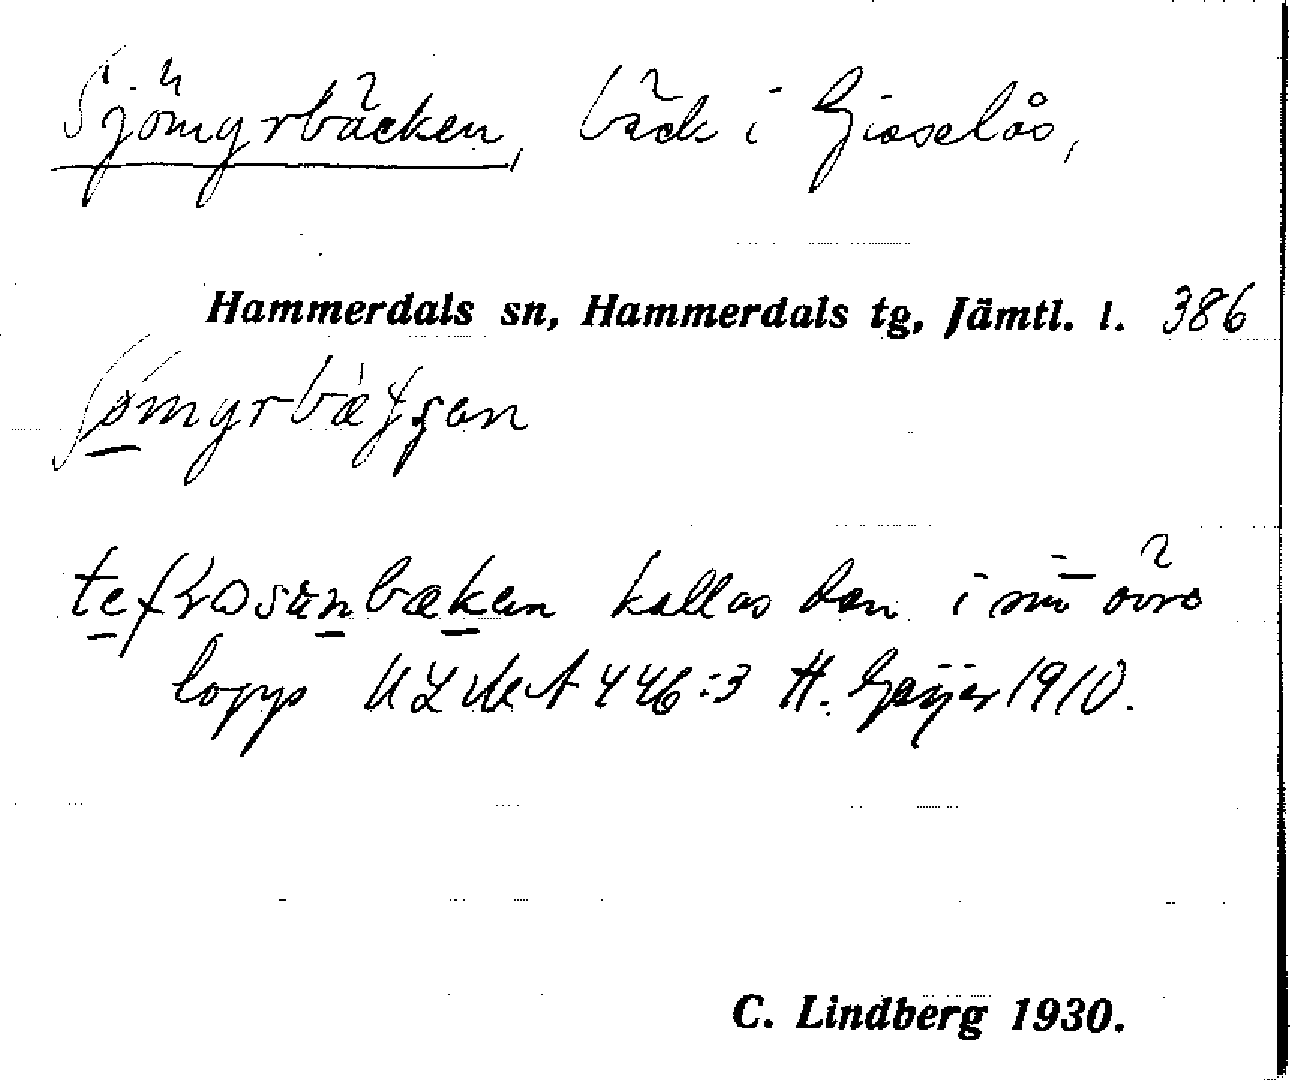 Sjömyrbäcken, bäck i Gisselås,
Hammerdals sn, Hammerdals tg, Jämtl. l. 386
kallas den i sitt övre
lopp ULMA 446:3 H. Geijer 1910.
C. Lindberg 1930.